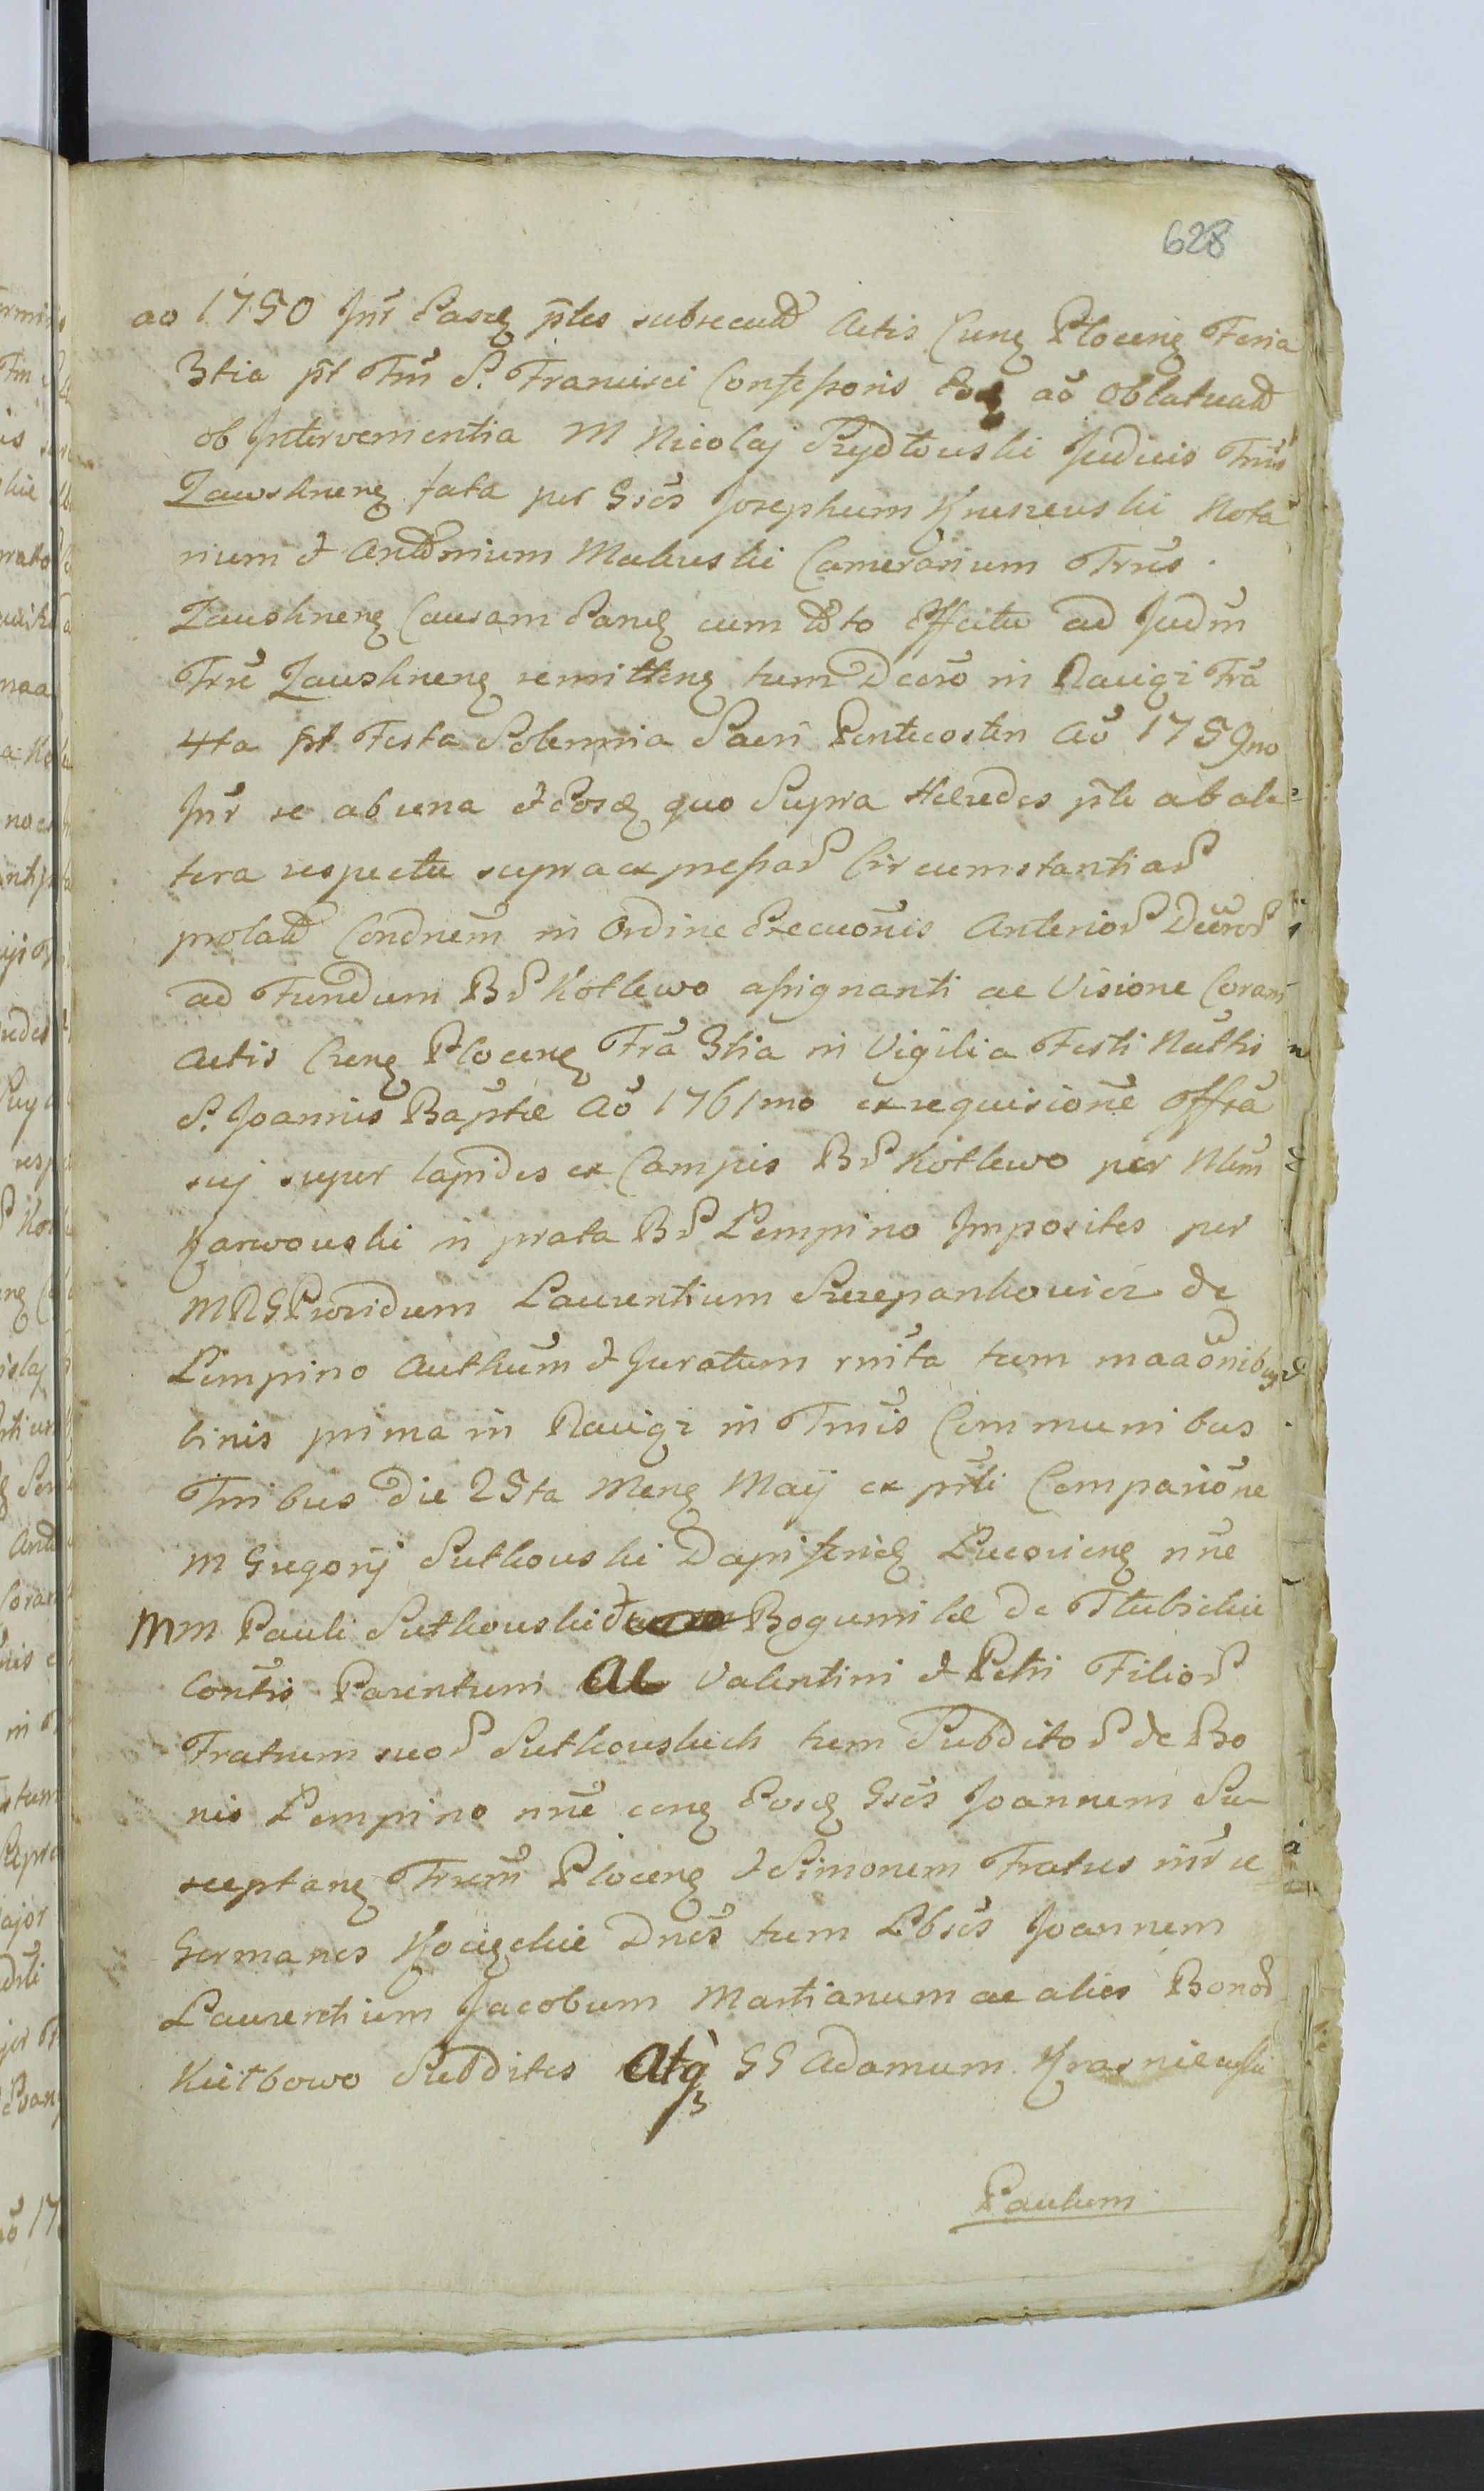 628
ao 1750 Inr Easdem ptes subsecuta Actis Cung Plocens Feria
3tia pt Ftm S. Francisci Confessoris ao Oblatuatt
ob Interventientia M Nicolaj Szydłowski Judicis Trrs
Zawskrnens fata per Gsos Josephum Kruszewski Nota
rium & Antonium Makuski Camerarium Trris
Zawskrnens Causam Panem cum toto Effectu ad Judm
Trrē Zawskrnens remittens tum Dccro in Raciąż Fra
4ta pt Festa Solennia Sacri Pentecostes Aō 1759no
Inr se ab una & Eosdem quo Supra Hæredes pte ab al
tera respectu supra expressar Circumstantiar
prolatt Condnem in Ordine Execuonis Anterior Decror
ad Fundum Br Kotlewo assignanti ac Visione Coram
Actis Cung Plocens Fra 3tia in Vigilia Festi Nattis
S. Joannis Baptæ Aō 1761mo ex requisione Offa
sij super lapides ex Campis Br Kotlewo per Nlem
Karwowski in prata Br Lempino Impositos per
MRG Providum Laurentium Szczepankowicz de
Lempino Authum & Juratum rnita tum maaonibus
binis prima in Raciąż in Trmis Communibus
Trribus Die 25ta Mens Maij ex prti Comparione
M Gregorij Sutkowski Dapiferidem Lucoviens nne
MM Pauli Sutkowski & Bogumilæ de Tłubickie
Contis Parentum Ac Valentini & Petri Filior
Fratrum suor Sutkowskich tum Subditor de Bo
nis Lempino nne cong Eosdem Gsos Joannem Su
sceptans Trrem Plocens & Simonem Fratres inr se
Germanos Kocięckie Dnos tum Lbsos Joannem
Laurentium Jacobum Martianum ac alios Bonor
Kiełbowo Subditos Atq GG Adamum Krasniewski
Paulum